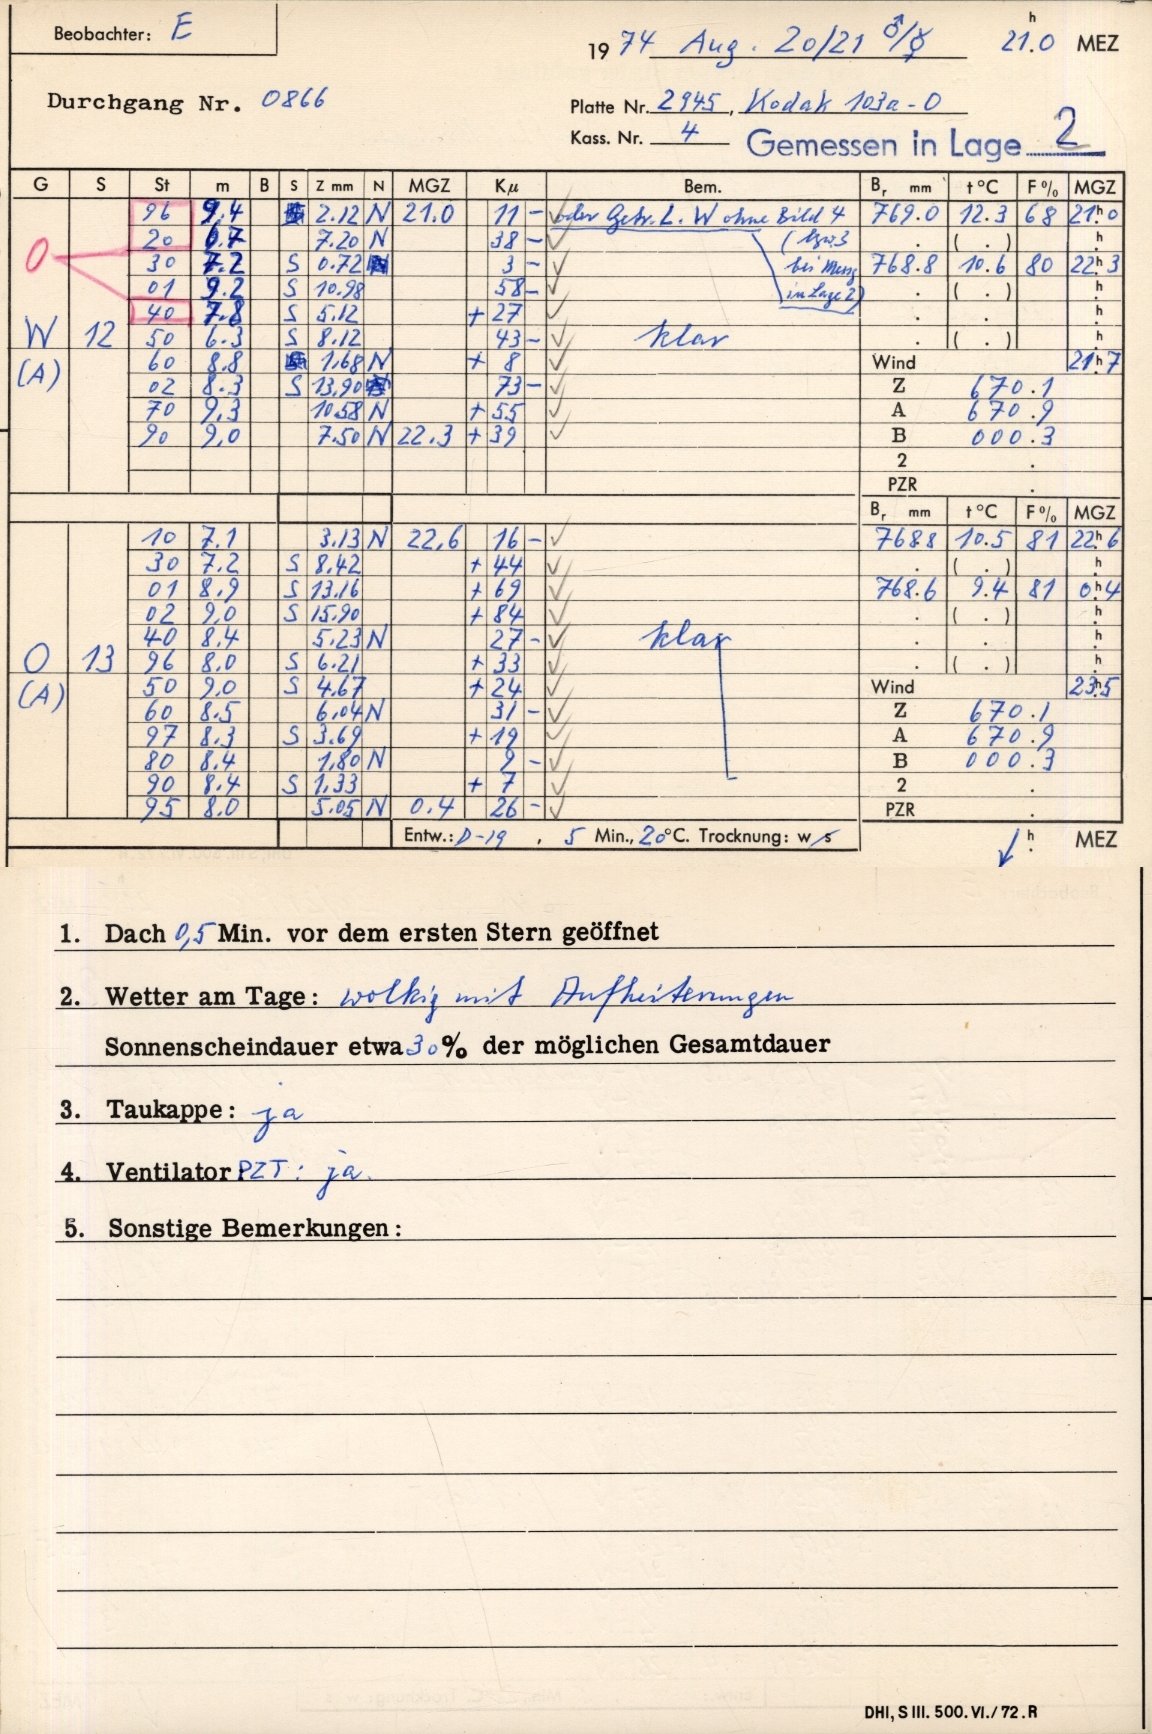 Beobachter: E
1974 Aug. 20/21 ♂/☿ 21.0 h MEZ
Durchgang Nr. 0866
Platte Nr. 2945, Kodak 103a-O
Kass. Nr. 4 Gemessen in Lage 2
G S St m B S Z mm N MGZ Kμ Bem. Br mm t°C F% MGZ
96 9.4 2.12 N 21.0 11 - oder Getr. L. W ohne Bild 4 769.0 12.3 68 21h0
20 6.7 7.20 N 38 - (bzw. 3 . ( . ) h
O 30 7.2 S 0.72 3 - bei Mess 768.8 10.6 80 22h3
01 9.2 S 10.98 58 - in Lage 2) . ( . ) h
40 7.8 S 5.12 + 27 . . h
W 12 50 6.3 S 8.12 43 - klar . ( . ) h
(A) 60 8.8 1.68 N + 8 Wind 21h7
02 8.3 S 13.90 73 - Z 670.1
70 9.3 10.58 N + 55 A 670.9
90 9.0 7.50 N 22.3 + 39 B 000.3
2 .
PZR .
Br mm t°C F% MGZ
10 7.1 3.13 N 22.6 16 - 768.8 10.5 81 22h6
30 7.2 S 8.42 + 44 . ( . ) h
01 8.9 S 13.16 + 69 768.6 9.4 81 0h4
02 9.0 S 15.90 + 84 . ( . ) h
40 8.4 5.23 N 27 - klar . . h
O 13 96 8.0 S 6.21 + 33 . ( . ) h
(A) 50 9.0 S 4.67 + 24 Wind 23h5
60 8.5 6.04 N 31 - Z 670.1
97 8.3 S 3.69 + 19 A 670.9
80 8.4 1.80 N 9 - B 000.3
90 8.4 S 1.33 + 7 2 .
95 8.0 5.05 N 0.4 26 - PZR .
Entw.: D-19, 5 Min., 20°C. Trocknung: w/s h. MEZ
1. Dach 0,5 Min. vor dem ersten Stern geöffnet
2. Wetter am Tage: wolkig mit Aufheiterungen
Sonnenscheindauer etwa 30% der möglichen Gesamtdauer
3. Taukappe: ja
4. Ventilator PZT: ja.
5. Sonstige Bemerkungen:
DHI, S III. 500. VI./72. R